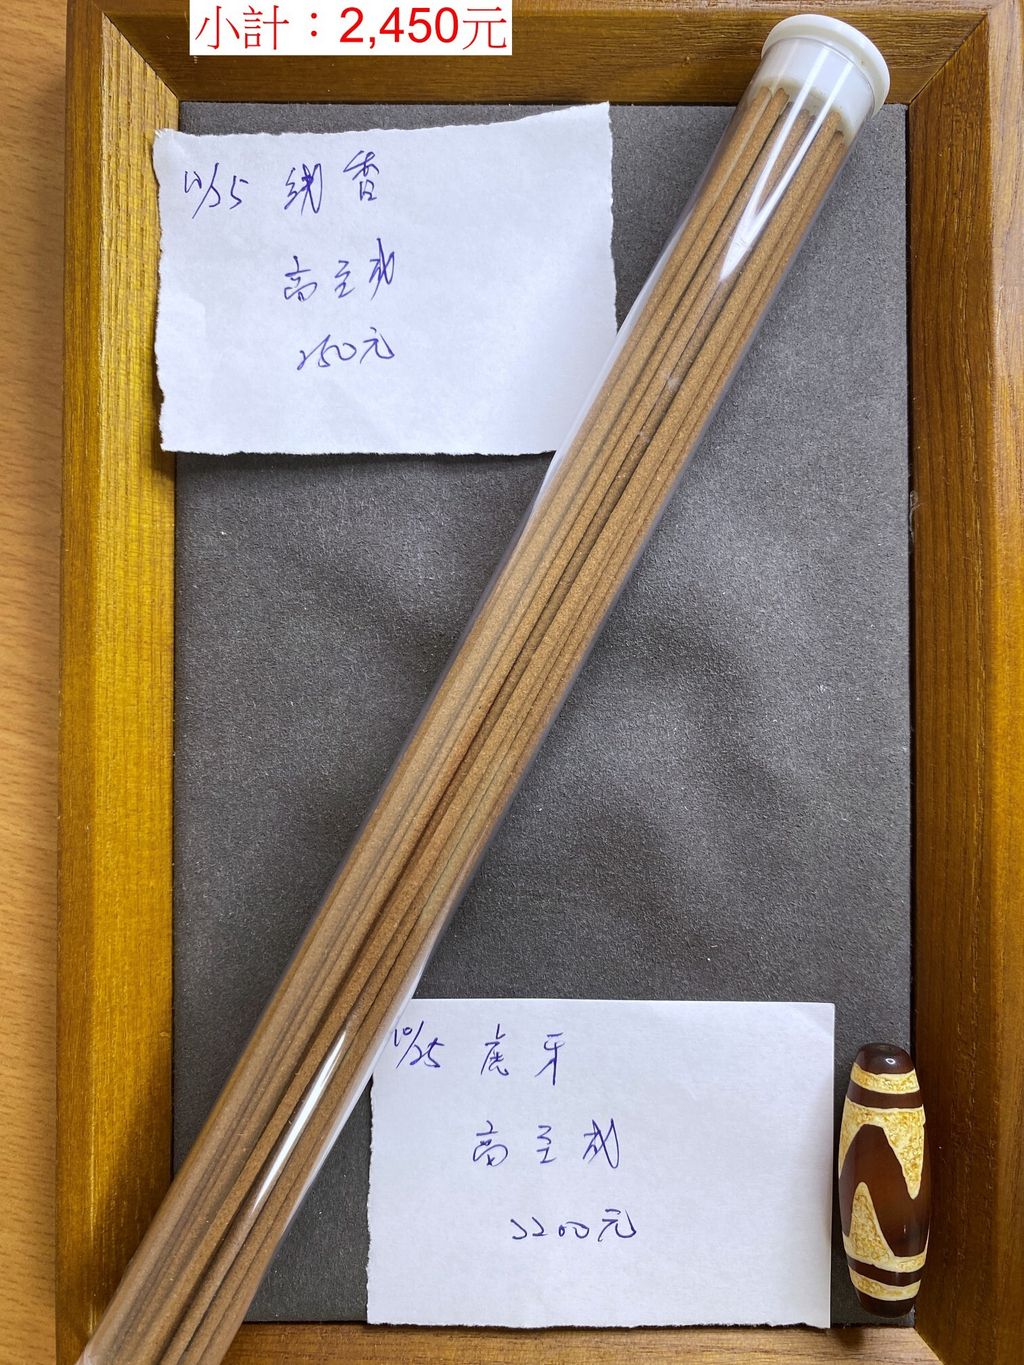 小計：2,450元
10/25 線香
高至成
250元
10/25 虎牙
高至成
2200元